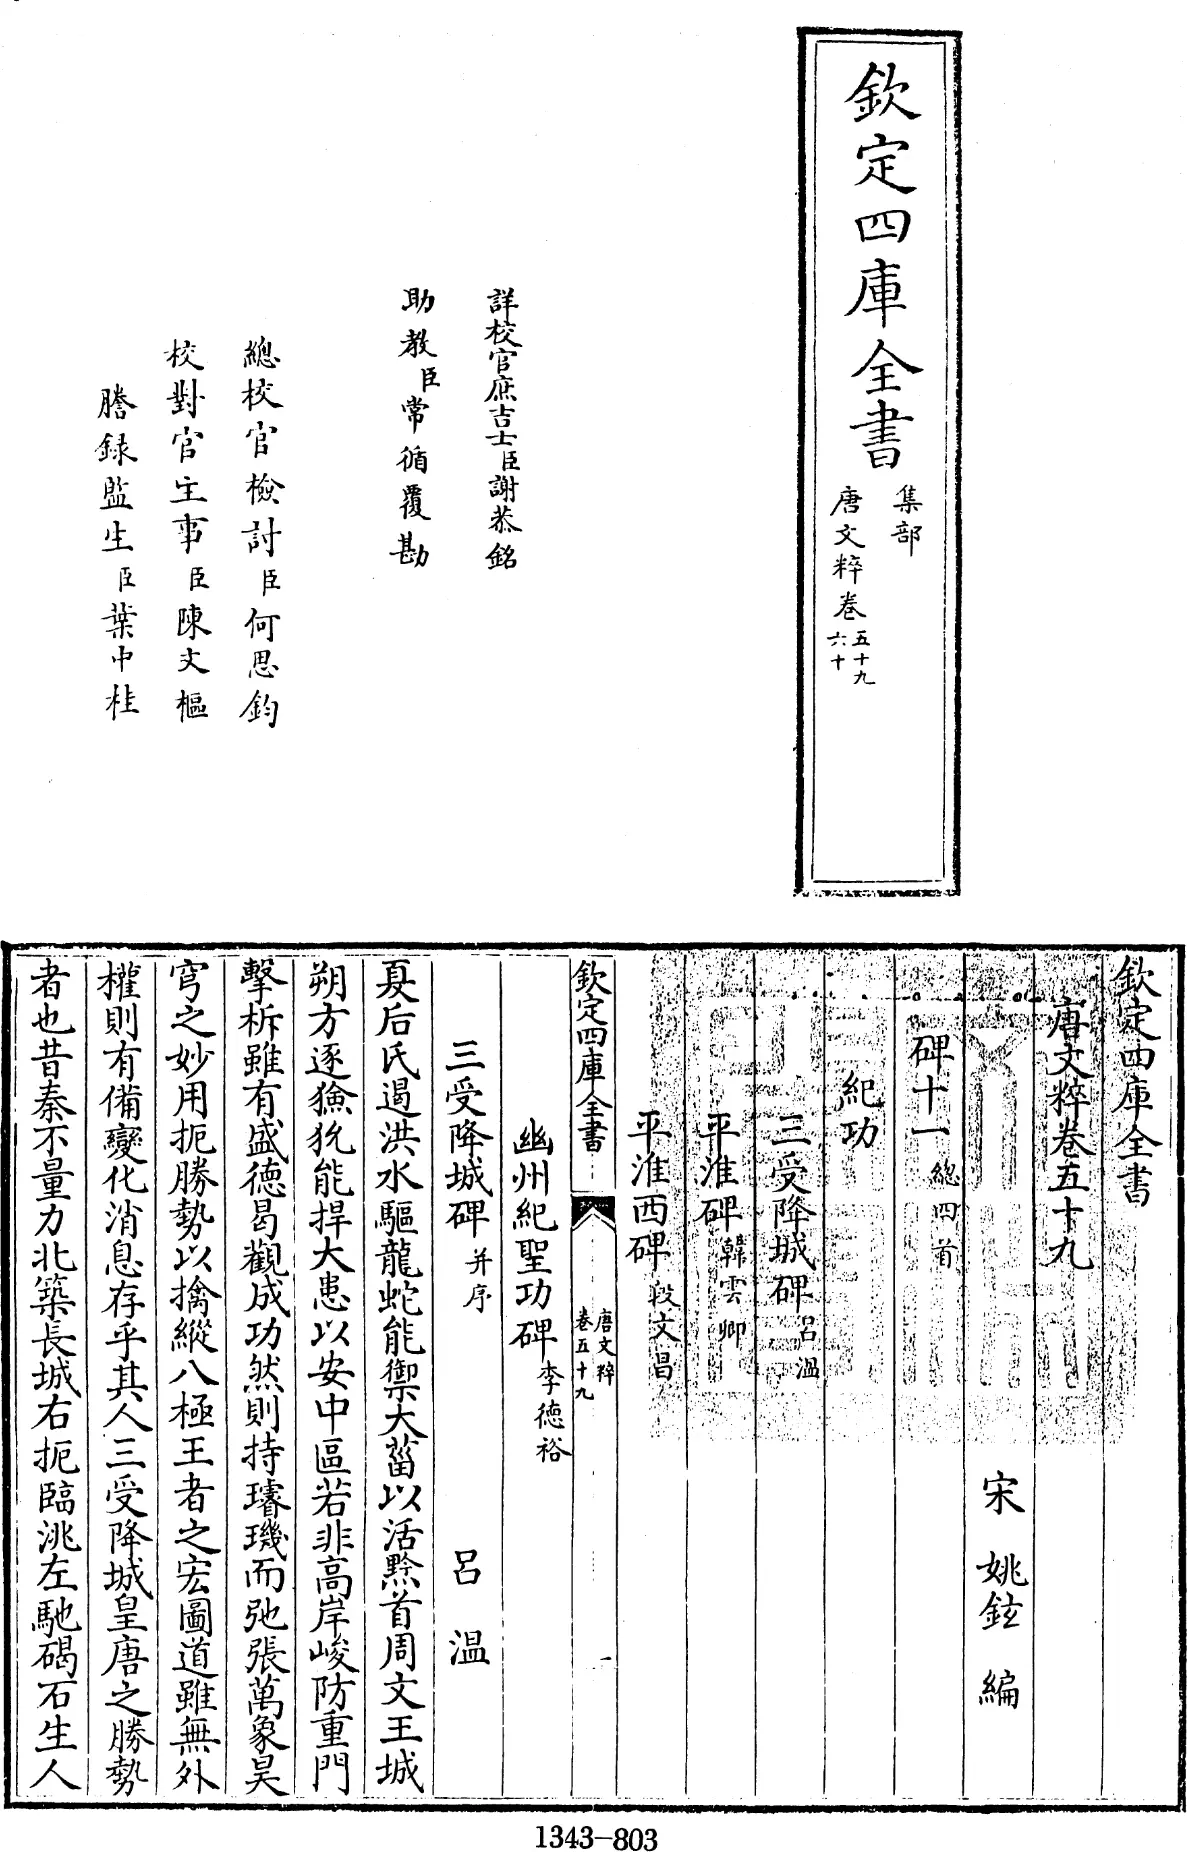 欽定四庫全書
集部
唐文粹卷
五十九
六十
詳校官庶吉士臣謝恭銘
助教臣常循覆勘
總校官檢討臣何思鈞
校對官主事臣陳文樞
謄録監生臣葉中桂
欽定四庫全書
唐文粹卷五十九
宋 姚鉉 編
碑十一 總四首
紀功
三受降城碑 呂溫
平淮碑 韓雲卿
平淮西碑 段文昌
欽定四庫全書
唐文粹
卷五十九
一
幽州紀聖功碑 李德裕
三受降城碑 并序 呂溫
夏后氏遏洪水驅龍蛇能禦大菑以活黔首周文王城
朔方逐獫狁能捍大患以安中區若非高岸峻防重門
擊柝雖有盛德曷觀成功然則持璿璣而弛張萬象昊
穹之妙用扼勝勢以擒縱八極王者之宏圖道雖無外
權則有備變化消息存乎其人三受降城皇唐之勝勢
者也昔秦不量力北築長城右扼臨洮左馳碣石生人
1343-803